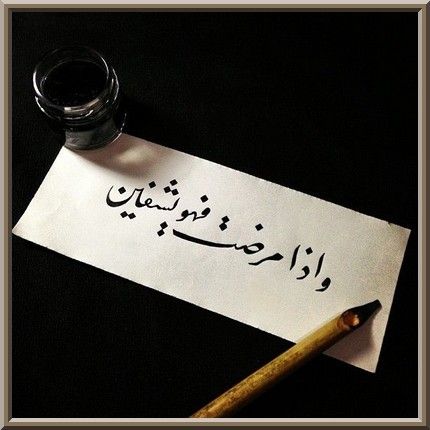 واذا مرضت فهو یشفین